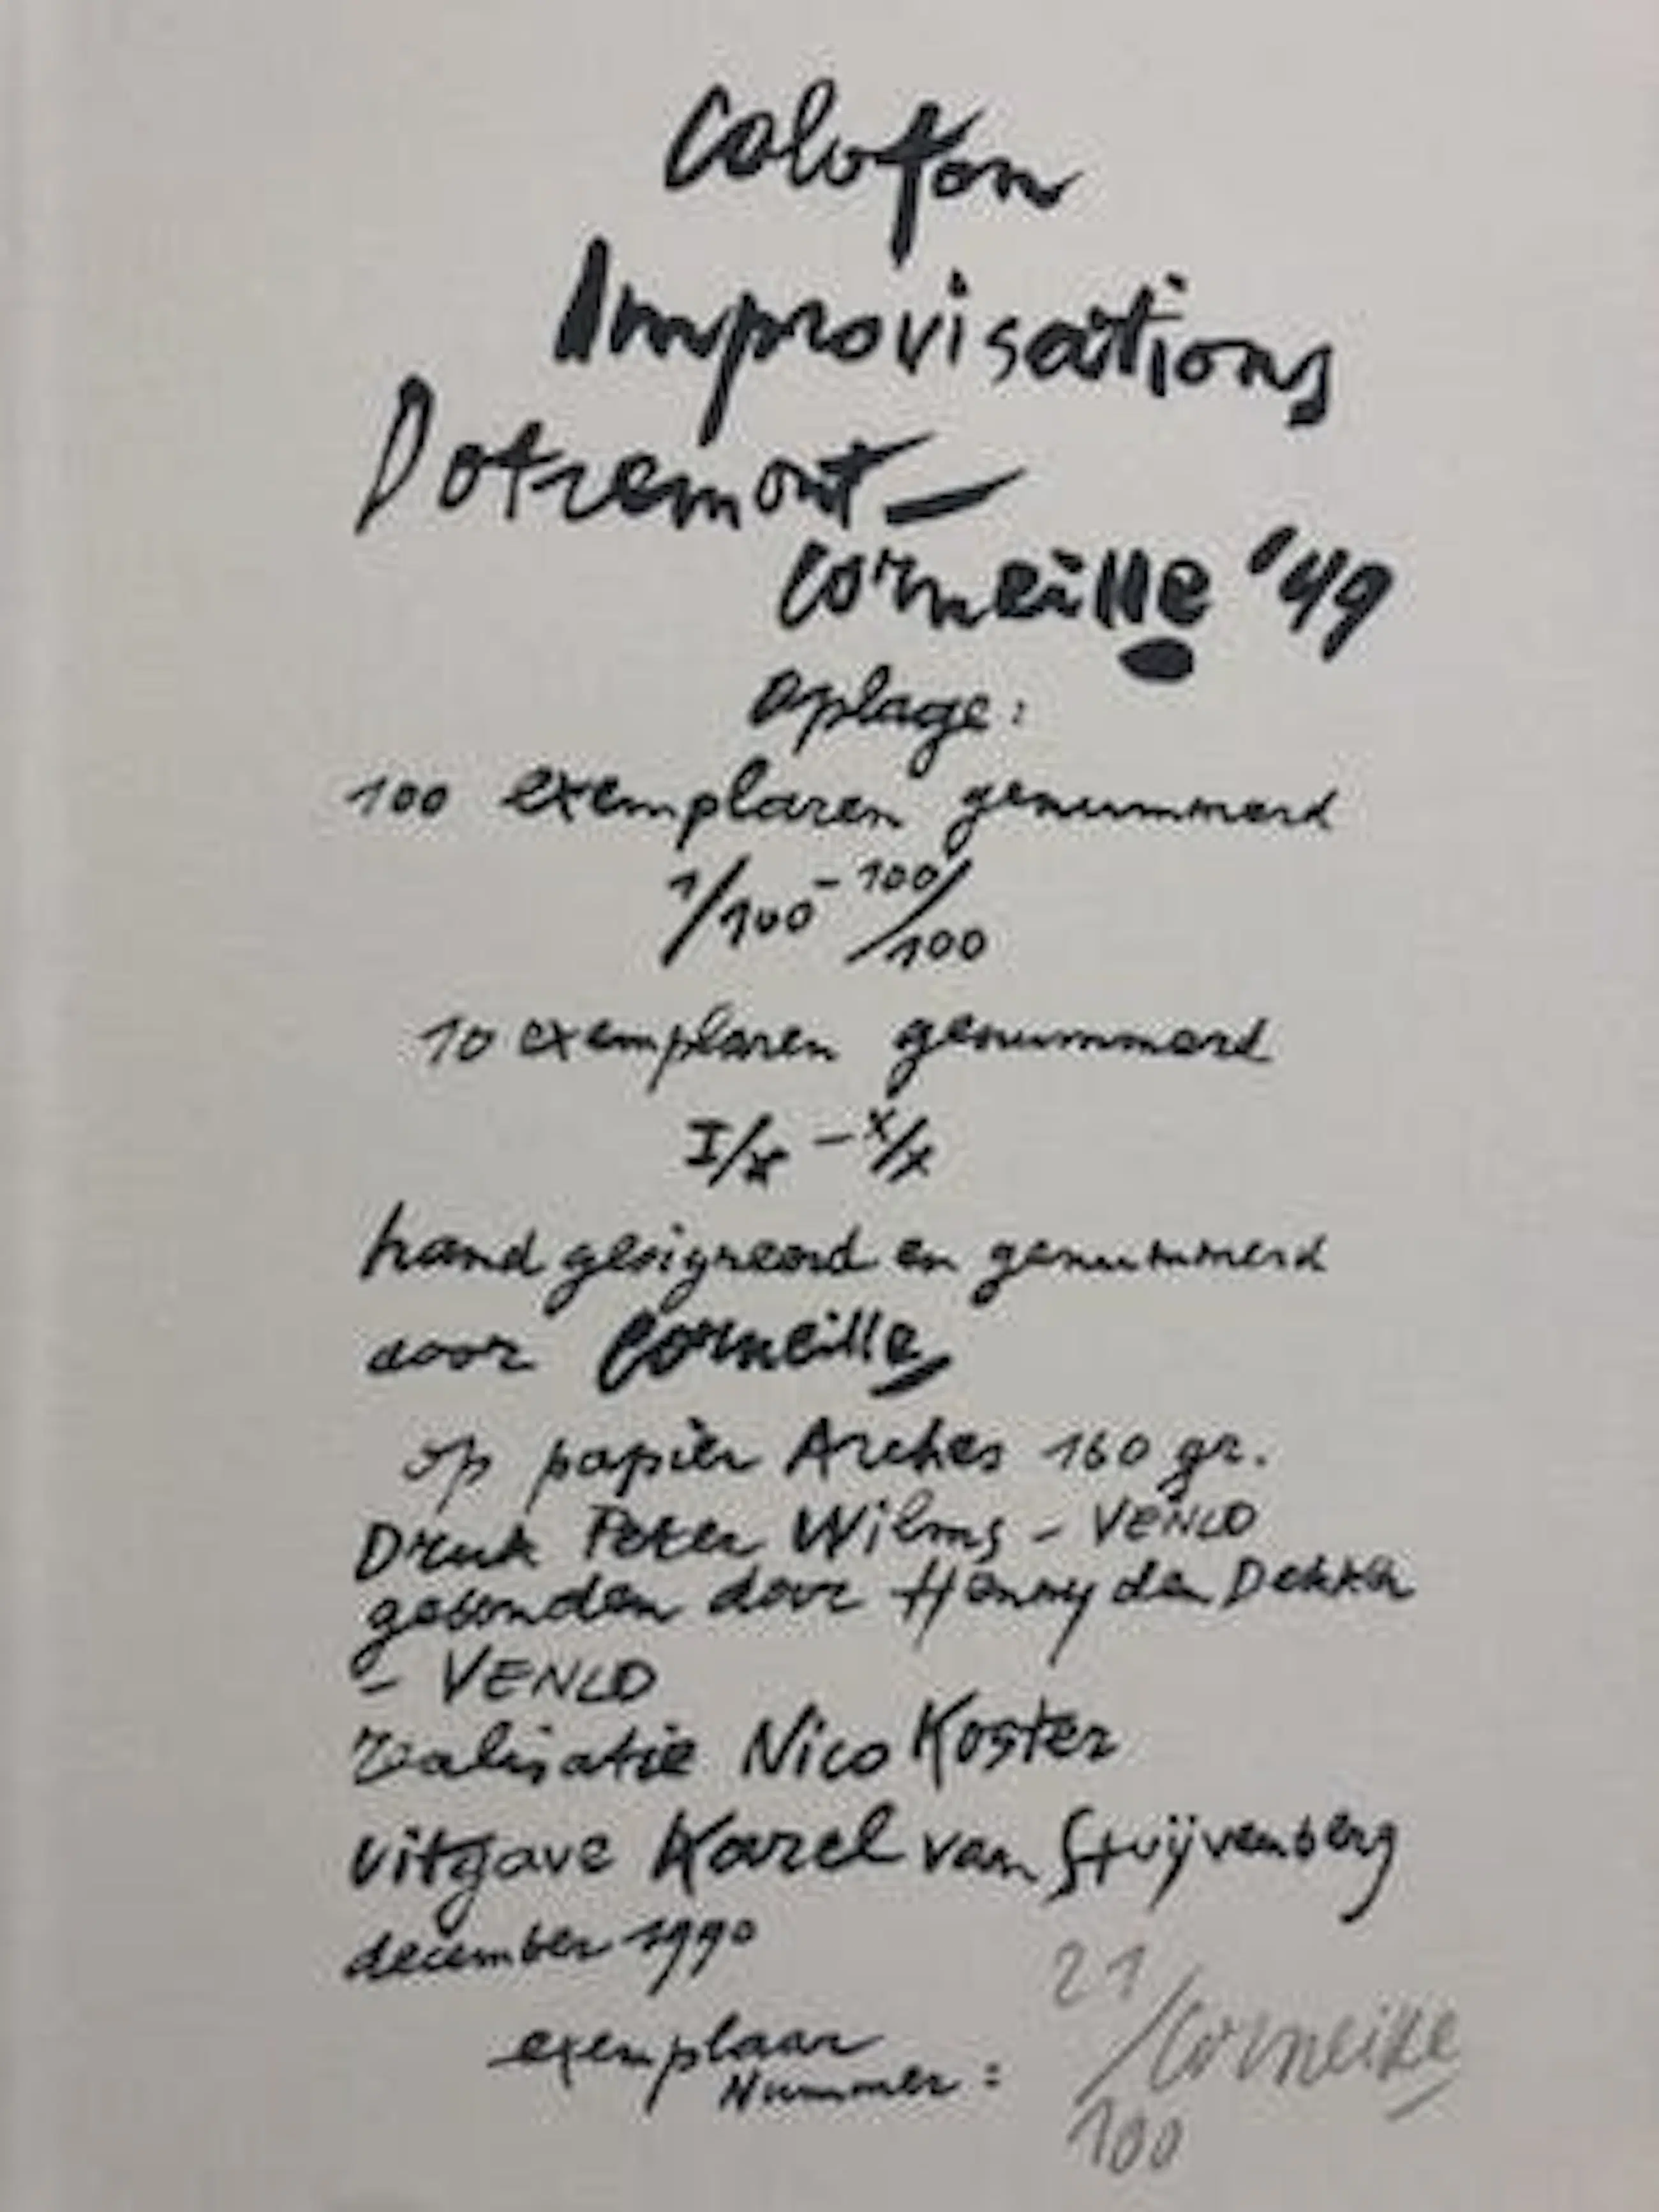 Colofon
Improvisations
Dotremont –
Corneille '49
Oplage:
100 exemplaren genummerd
1/100 - 100/100
10 exemplaren genummerd
I/X – X/X
hand gesigneerd en genummerd
door Corneille
op papier Arches 160 gr.
Druk Peter Wilms – VENLO
gebonden door Henny den Dekker
– VENLO
realisatie Nico Koster
uitgave Karel van Stuijvenberg
december 1990
exemplaar
Nummer: 21/100 Corneille